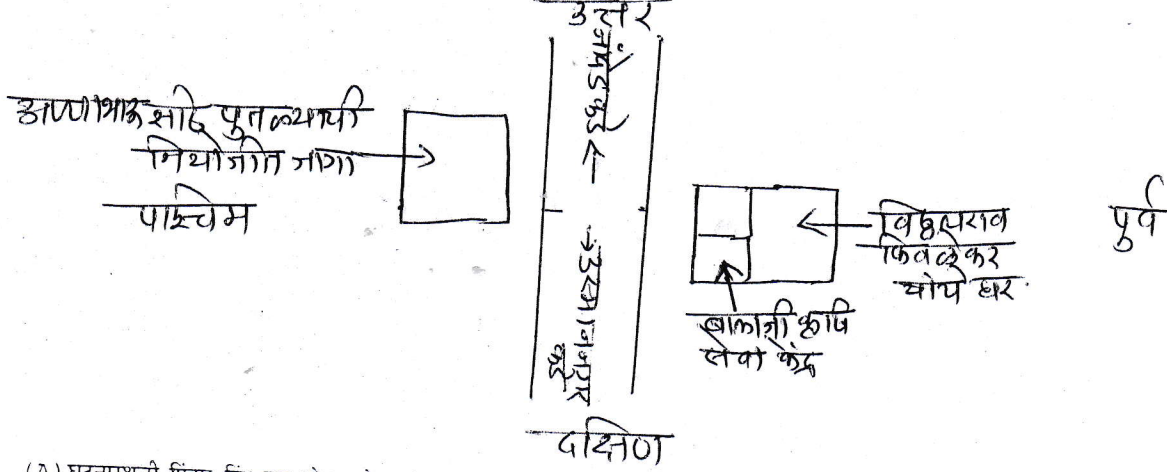 उत्तर
नांदेडकडे ←
अण्णाभाऊ साठे पुतळ्याची
नियोजीत जागा
पश्चिम
→ उस्माननगर
कडे
विठ्ठलराव
फिवळेकर
यांचे घर
पुर्व
बालाजी कृषि
सेवा केंद्र
दक्षिण
(A)